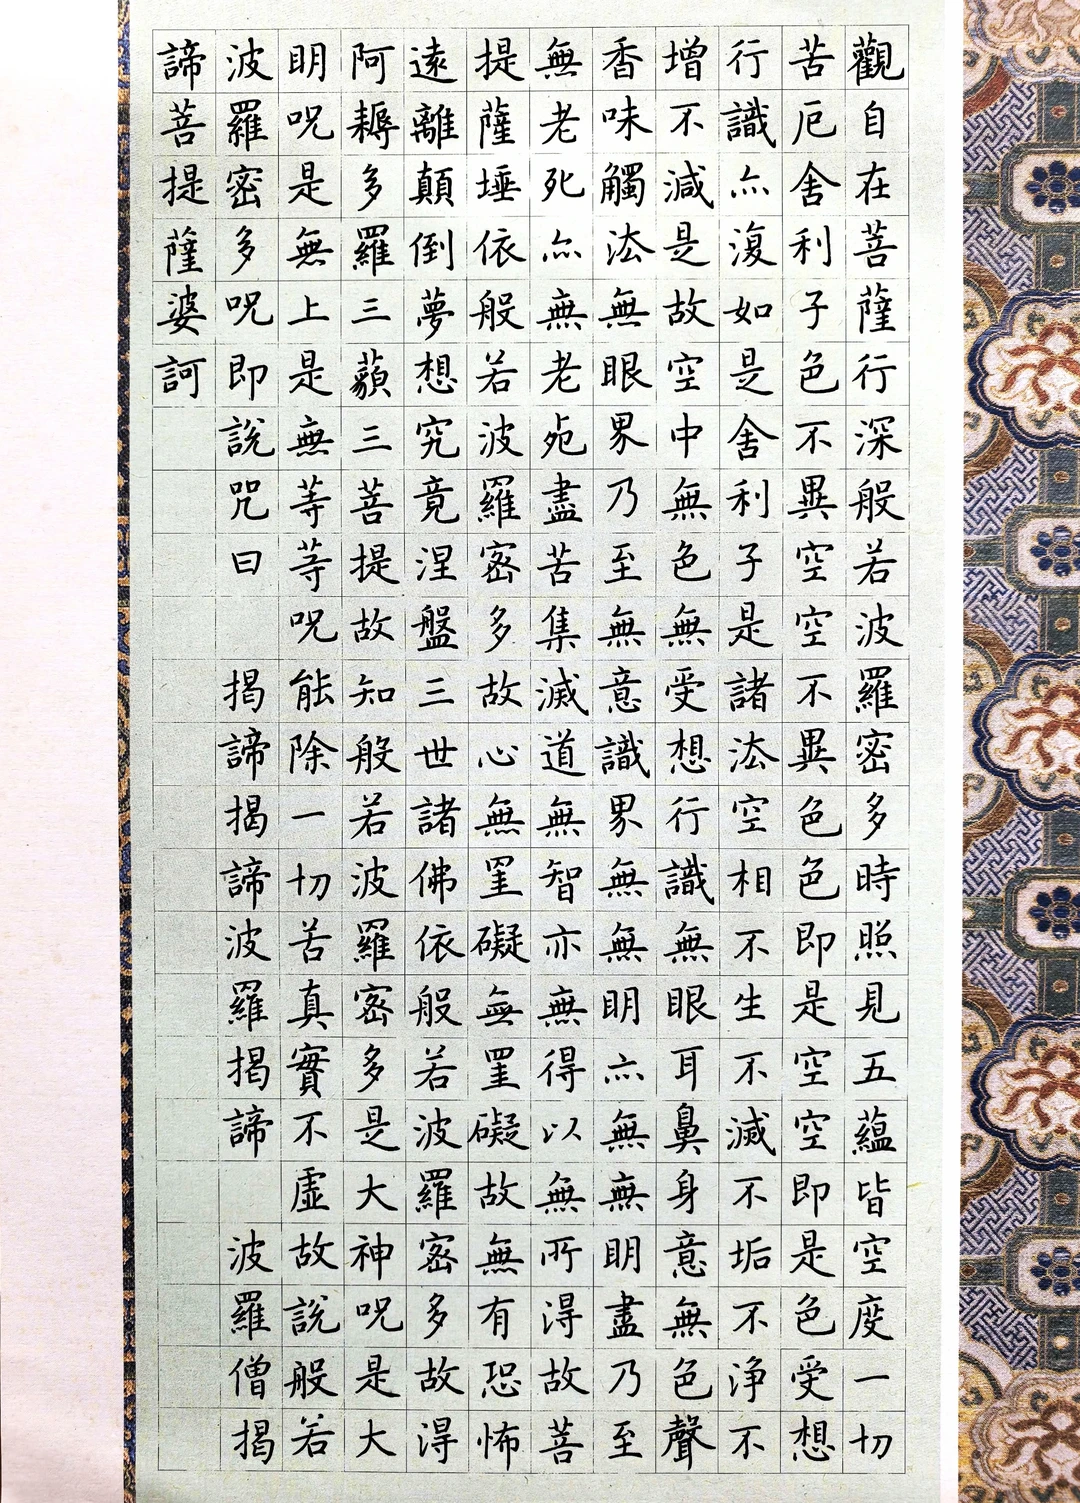 觀自在菩薩行深般若波羅密多時照見五蘊皆空度一切
苦厄舍利子色不異空空不異色色即是空空即是色受想
行識亦復如是舍利子是諸法空相不生不滅不垢不淨不
增不減是故空中無色無受想行識無眼耳鼻身意無色聲
香味觸法無眼界乃至無意識界無無明亦無無明盡乃至
無老死亦無老死盡苦集滅道無智亦無得以無所得故菩
提薩埵依般若波羅密多故心無罣礙無罣礙故無有恐怖
遠離顛倒夢想究竟涅盤三世諸佛依般若波羅密多故得
阿耨多羅三藐三菩提故知般若波羅密多是大神咒是大
明咒是無上是無等等咒能除一切苦真實不虛故說般若
波羅密多咒即說咒曰 揭諦揭諦波羅揭諦 波羅僧揭
諦菩提薩婆訶